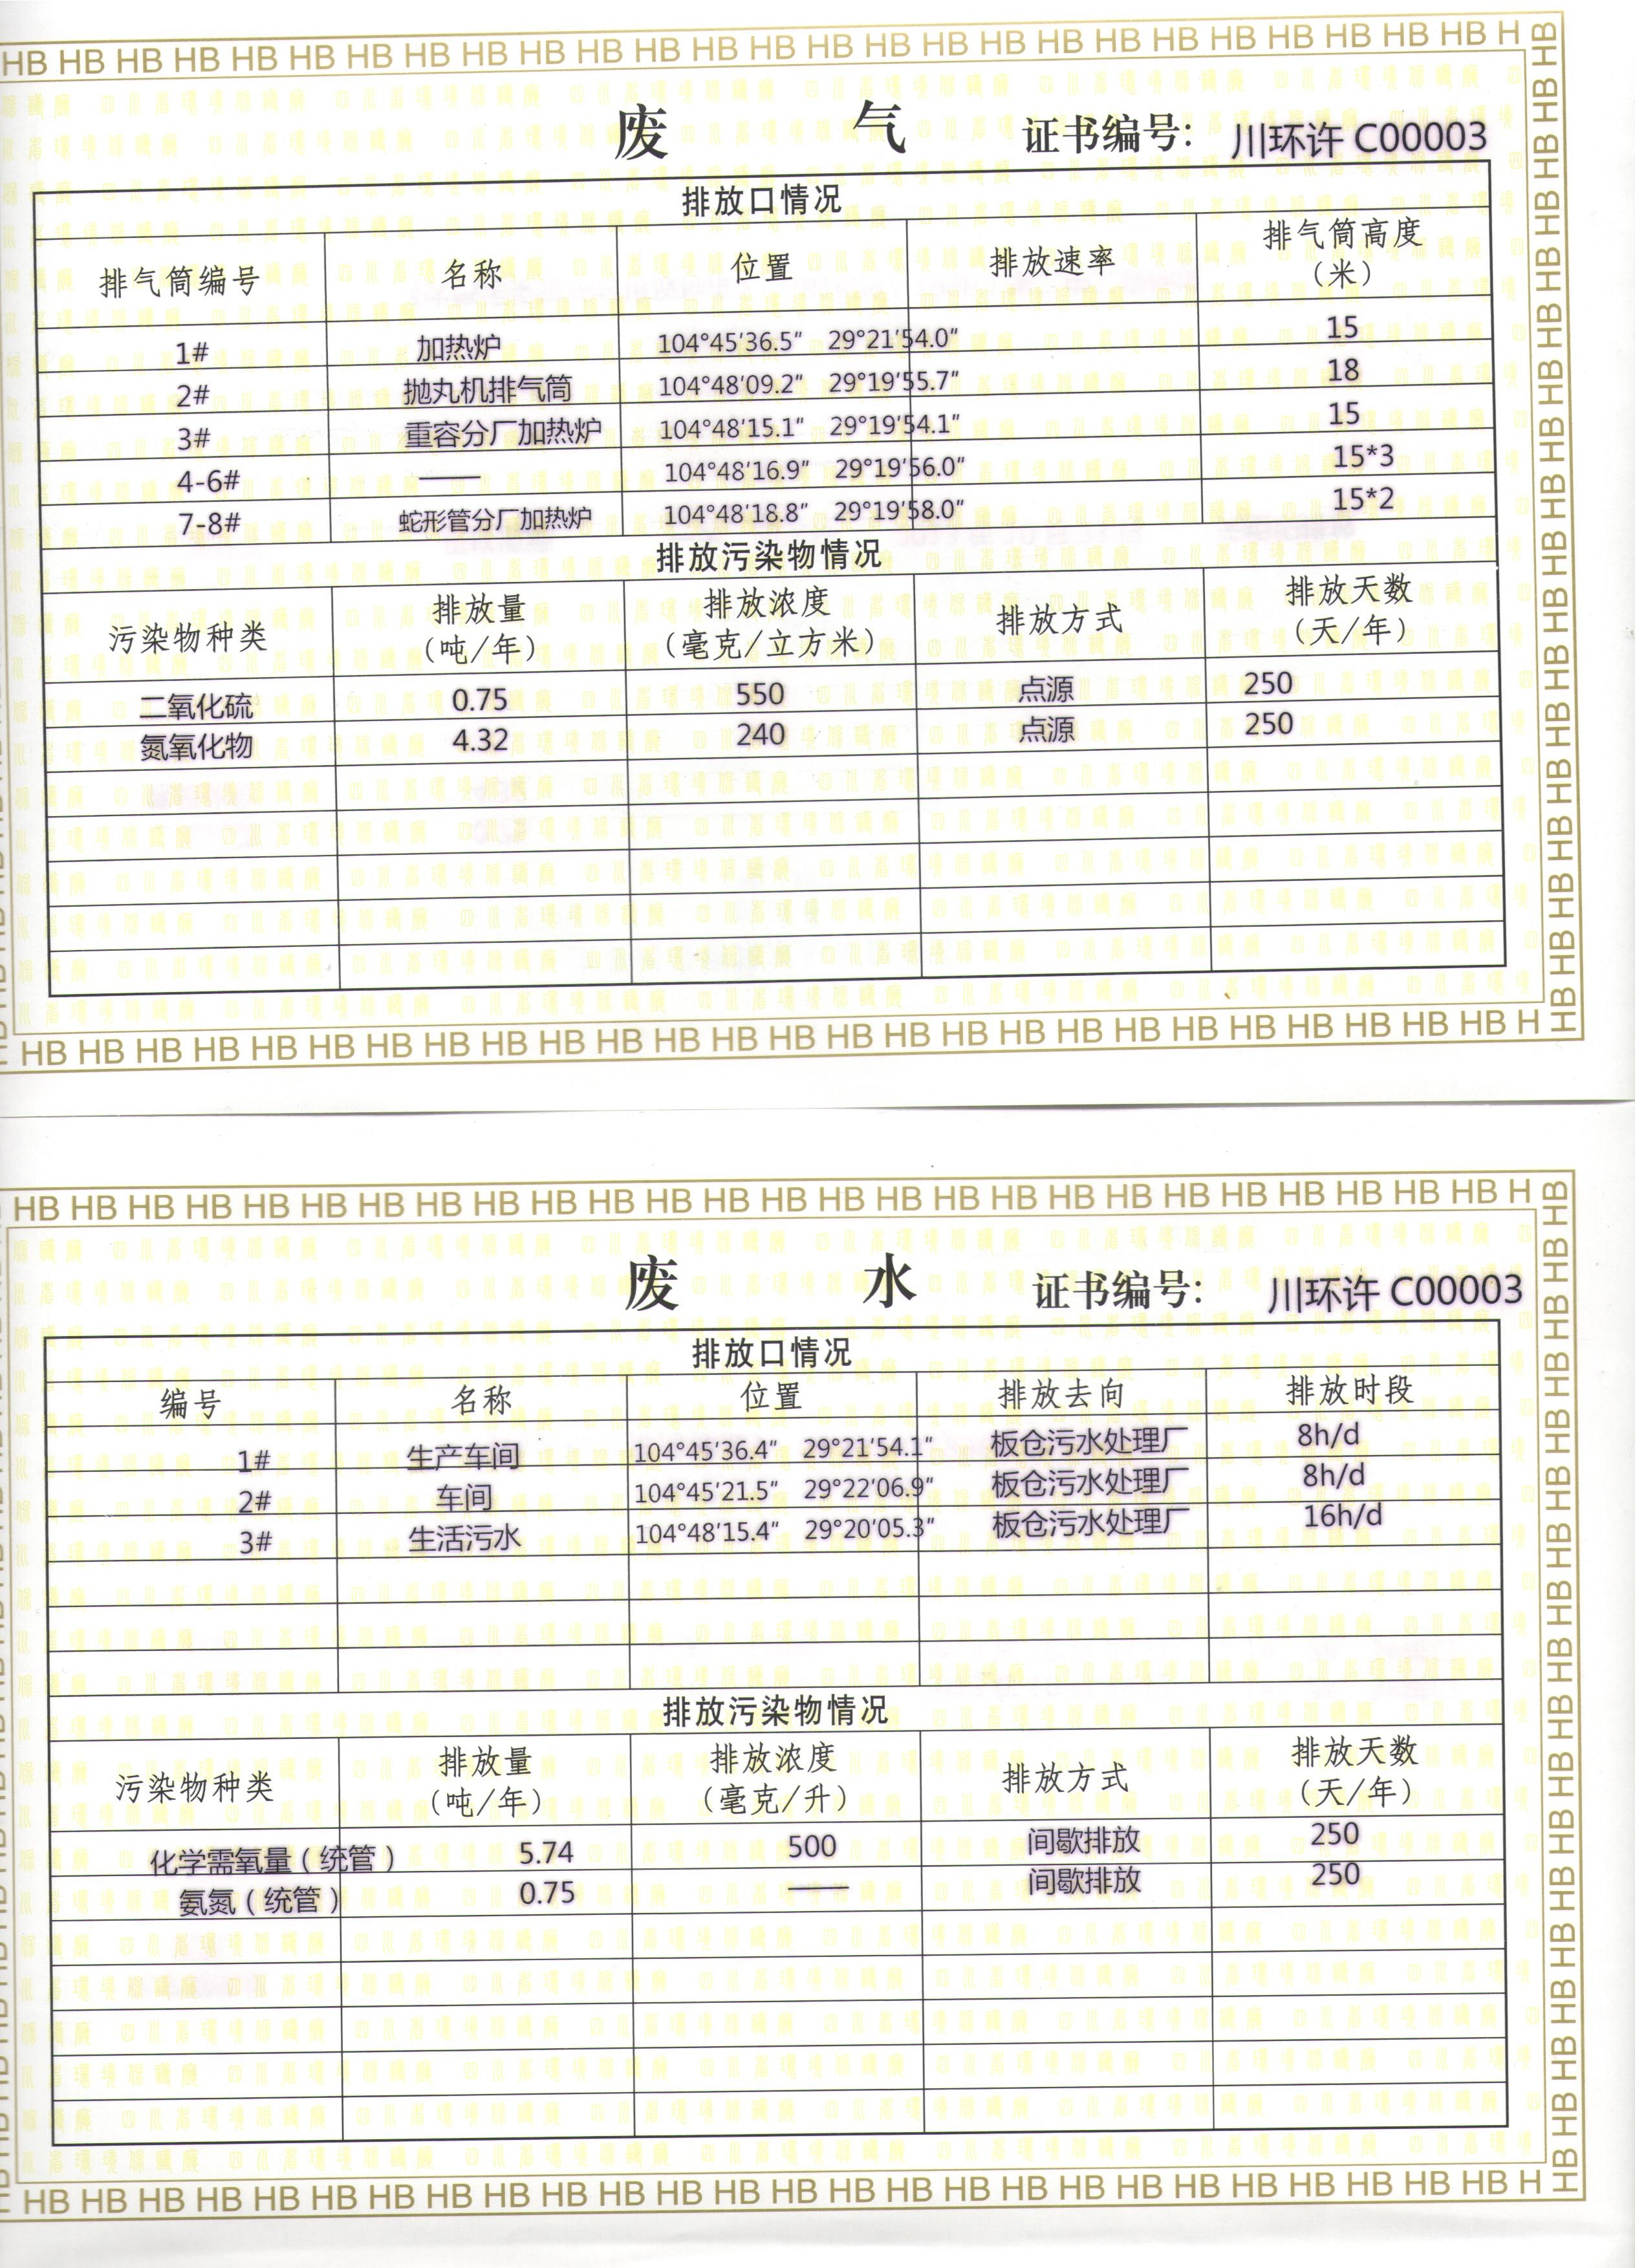 HB HB HB HB HB HB HB HB HB HB HB HB HB HB HB HB HB HB HB HB HB HB HB HB HB HB H
废 气 证书编号: 川环许 C00003
排放口情况
排气筒编号 名称 位置 排放速率 排气筒高度(米)
1# 加热炉 104°45′36.5″ 29°21′54.0″ 15
2# 抛丸机排气筒 104°48′09.2″ 29°19′55.7″ 18
3# 重容分厂加热炉 104°48′15.1″ 29°19′54.1″ 15
4-6# —— 104°48′16.9″ 29°19′56.0″ 15*3
7-8# 蛇形管分厂加热炉 104°48′18.8″ 29°19′58.0″ 15*2
排放污染物情况
污染物种类 排放量(吨/年) 排放浓度(毫克/立方米) 排放方式 排放天数(天/年)
二氧化硫 0.75 550 点源 250
氮氧化物 4.32 240 点源 250
HB HB HB HB HB HB HB HB HB HB HB HB HB HB HB HB HB HB HB HB HB HB HB HB HB HB H
HB HB HB HB HB HB HB HB HB HB HB HB HB HB HB HB HB HB HB HB HB HB HB HB HB HB H
废 水 证书编号: 川环许 C00003
排放口情况
编号 名称 位置 排放去向 排放时段
1# 生产车间 104°45′36.4″ 29°21′54.1″ 板仓污水处理厂 8h/d
2# 车间 104°45′21.5″ 29°22′06.9″ 板仓污水处理厂 8h/d
3# 生活污水 104°48′15.4″ 29°20′05.3″ 板仓污水处理厂 16h/d
排放污染物情况
污染物种类 排放量(吨/年) 排放浓度(毫克/升) 排放方式 排放天数(天/年)
化学需氧量(统管) 5.74 500 间歇排放 250
氨氮(统管) 0.75 —— 间歇排放 250
HB HB HB HB HB HB HB HB HB HB HB HB HB HB HB HB HB HB HB HB HB HB HB HB HB HB H